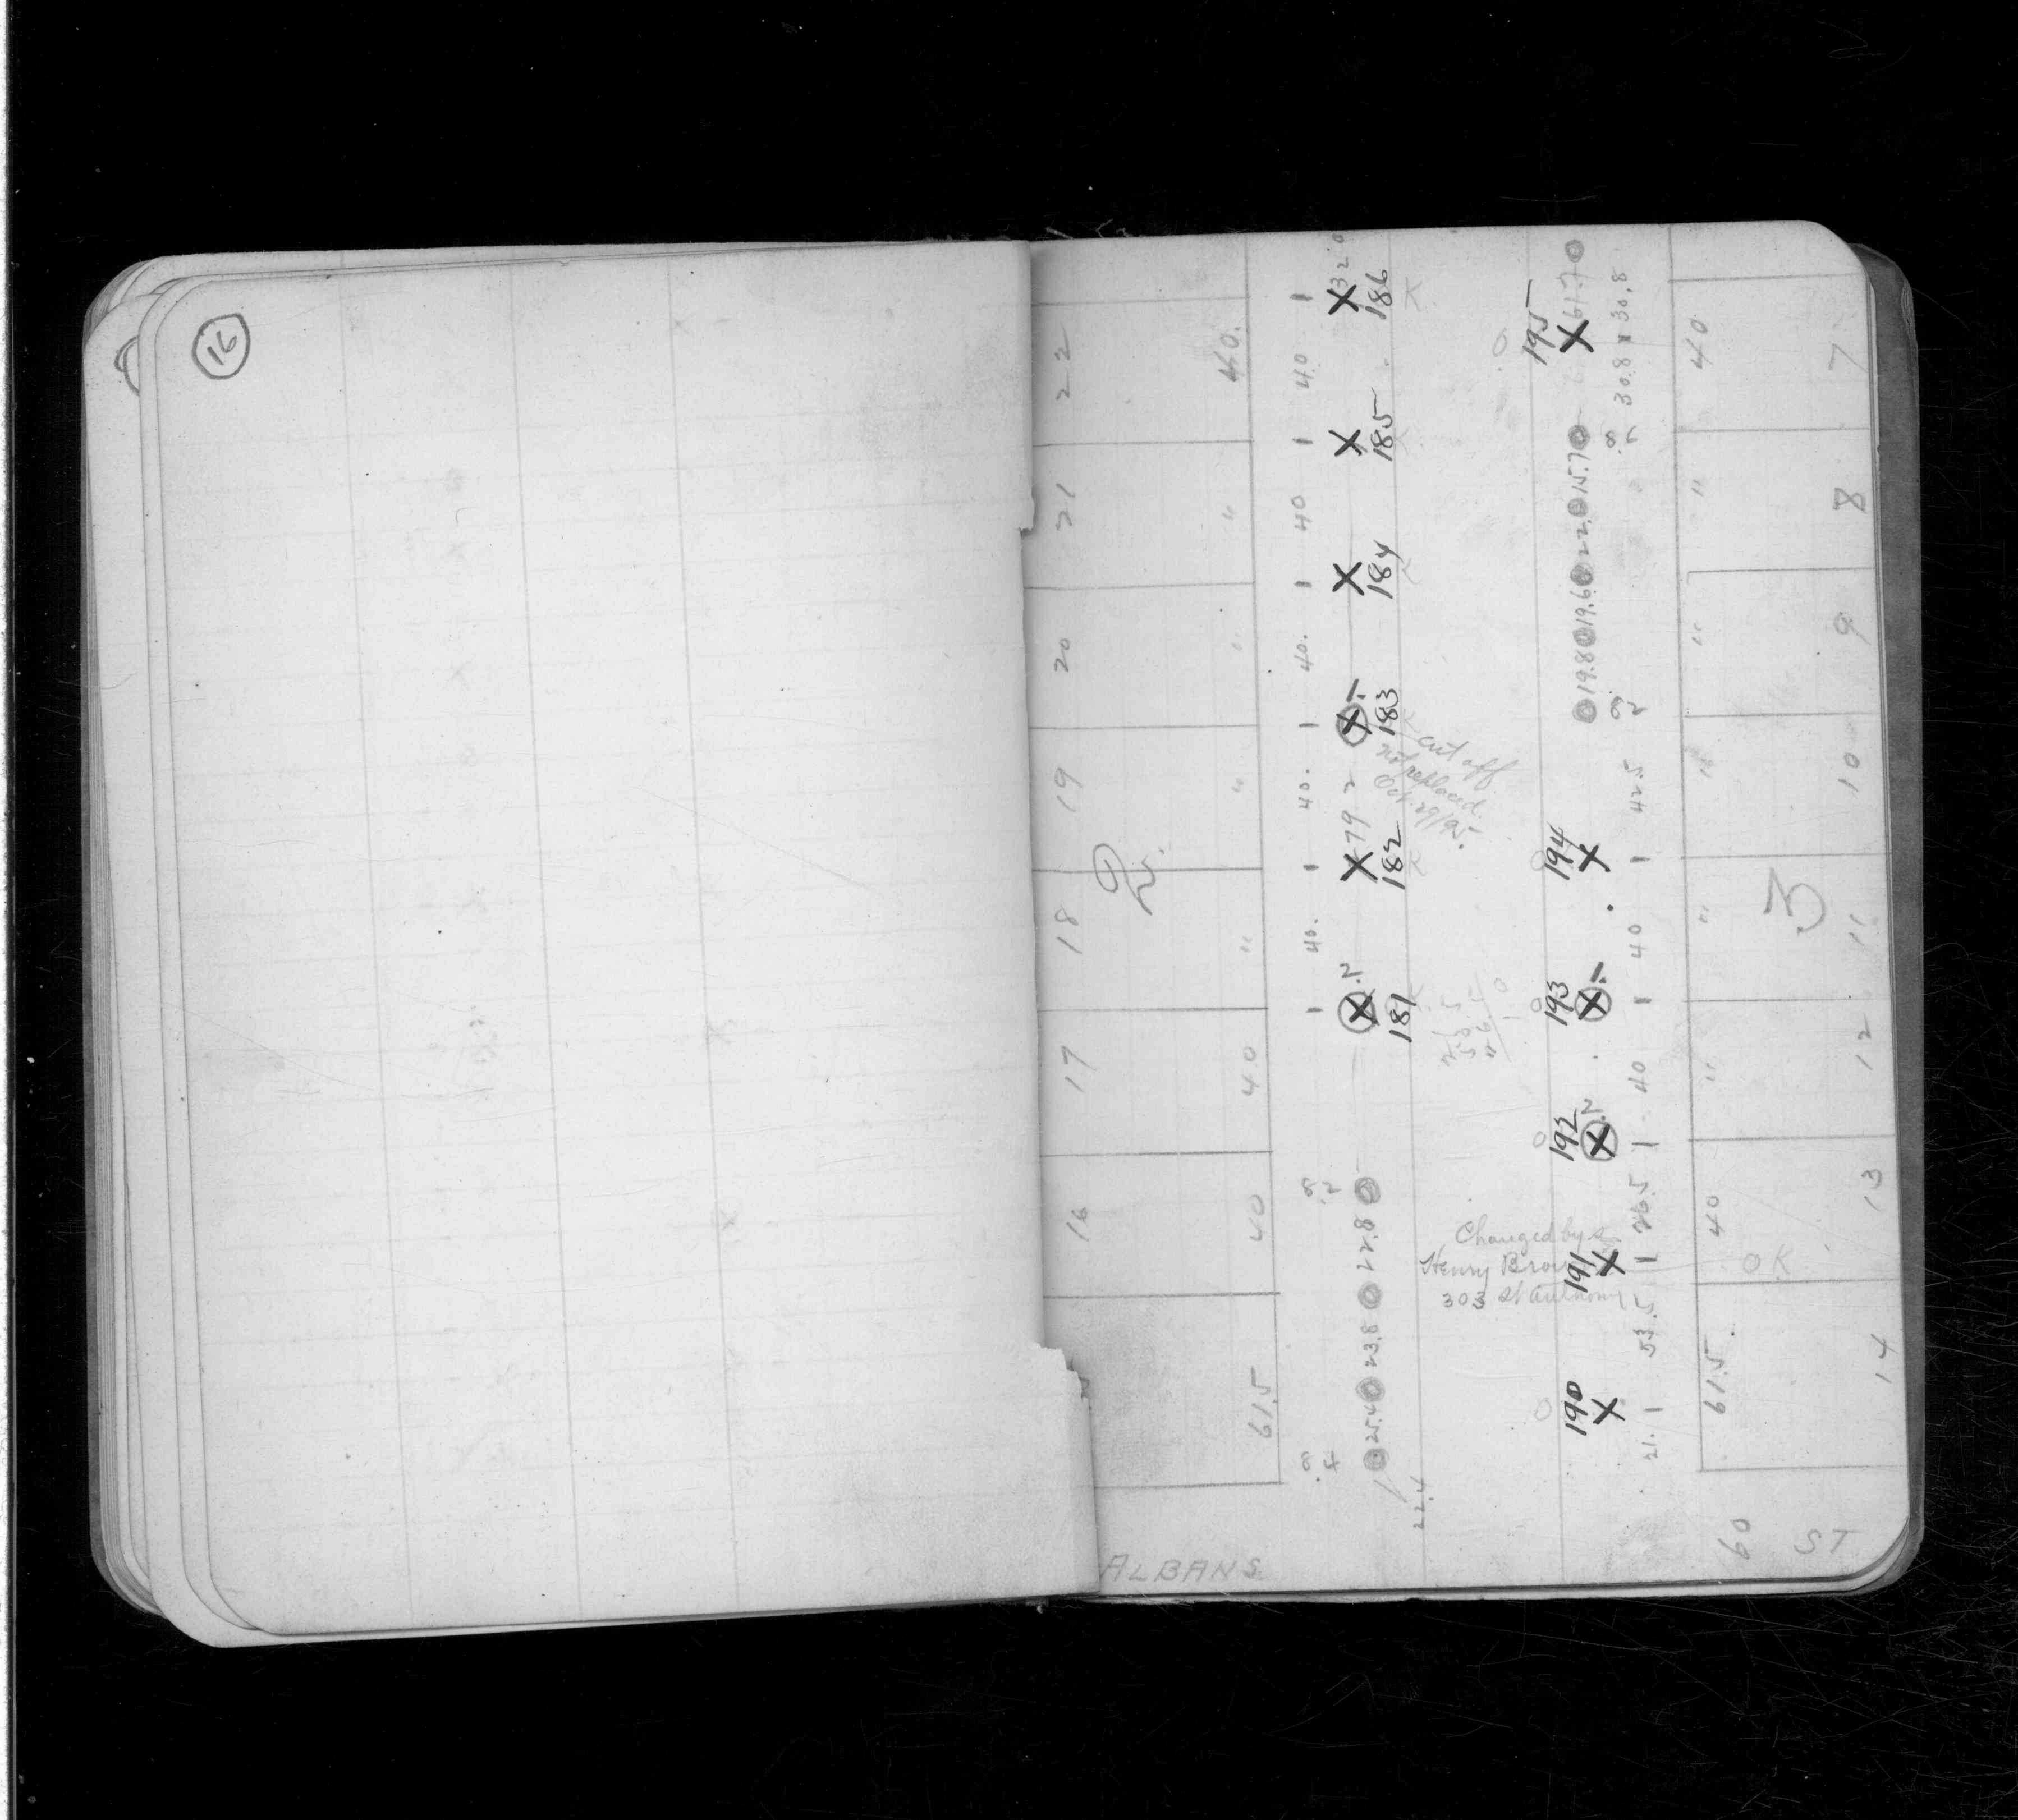 16
22 21 20 19 18 17 16
2.
40. " " " " " 40 40 61.5
1 40 1 40 1 40. 1 40. 1 40. 1
32.0
186 185 184 183 182 181
79.2
25.4 23.8 22.8
22.4
cut off
not replaced
Oct. 29/95.
Changed by
Henry Brown
303 St Anthony
195 194 193 192 191 190
19.8 19.6 22. 15.7
30.8 30.8
42.5 1 40 1 40 1 26.5 1 53.5 1 21.
40 " " " " " 40 61.5
OK
3
7 8 9 10 11 12 13 14
ALBANS
60 ST